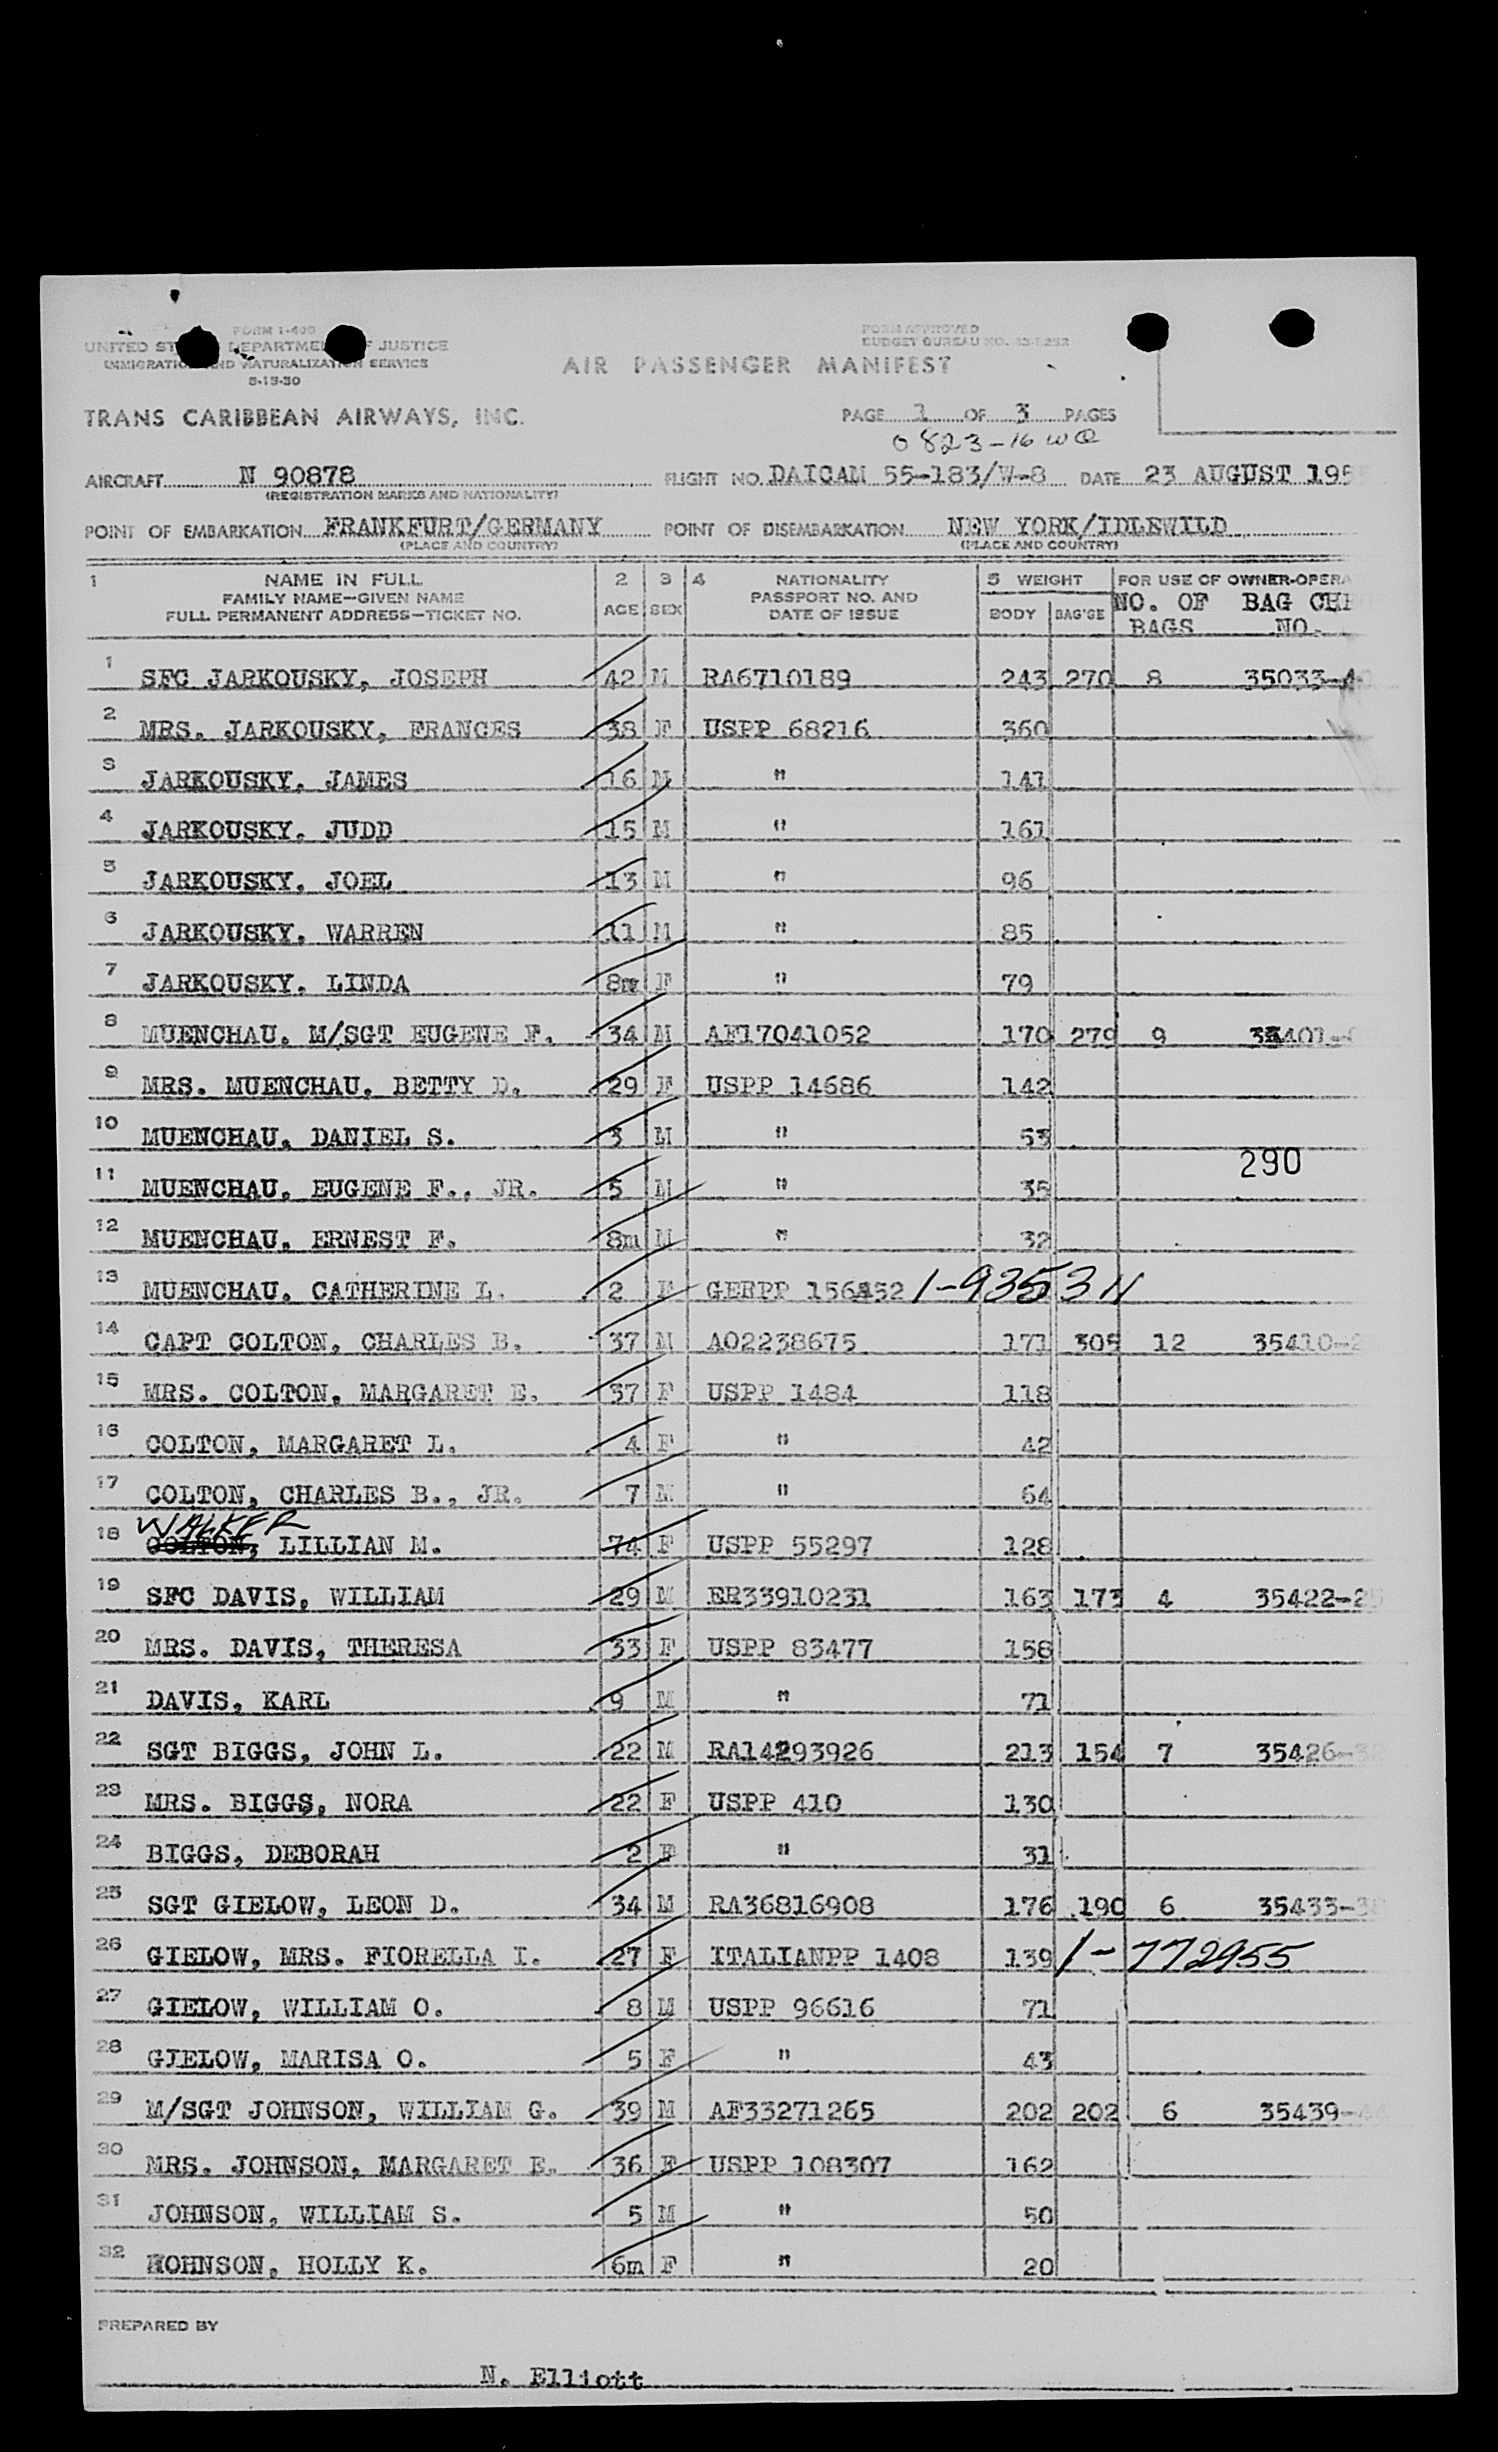 FORM I-400
UNITED ST DEPARTME F JUSTICE
IMMIGRATIO ND NATURALIZATION SERVICE
5-15-50
FORM APPROVED
BUDGET BUREAU NO.
AIR PASSENGER MANIFEST
TRANS CARIBBEAN AIRWAYS, INC.
PAGE 1 OF 3 PAGES
0823-16 WQ
AIRCRAFT N 90878 FLIGHT NO. DAICAM 55-183/W-8 DATE 23 AUGUST 195
(REGISTRATION MARKS AND NATIONALITY)
POINT OF EMBARKATION FRANKFURT/GERMANY POINT OF DISEMBARKATION NEW YORK/IDLEWILD
(PLACE AND COUNTRY) (PLACE AND COUNTRY)
1 NAME IN FULL 2 3 4 NATIONALITY 5 WEIGHT FOR USE OF OWNER-OPERA
FAMILY NAME-GIVEN NAME PASSPORT NO. AND
FULL PERMANENT ADDRESS-TICKET NO. AGE SEX DATE OF ISSUE BODY BAG'GE NO. OF BAG CHE
BAGS NO.
1 SFC JARKOUSKY, JOSEPH 42 M RA6710189 243 270 8 35033-4
2 MRS. JARKOUSKY, FRANCES 38 F USPP 68216 360
3 JARKOUSKY. JAMES 16 M " 141
4 JARKOUSKY. JUDD 15 M " 161
5 JARKOUSKY. JOEL 13 M " 96
6 JARKOUSKY. WARREN 11 M " 85
7 JARKOUSKY. LINDA 8m F " 79
8 MUENCHAU. M/SGT EUGENE F. 34 M AF17041052 170 279 9 35401-
9 MRS. MUENCHAU. BETTY D. 29 F USPP 14686 142
10 MUENCHAU. DANIEL S. 3 M " 53
290
11 MUENCHAU. EUGENE F., JR. 5 M " 35
12 MUENCHAU. ERNEST F. 8m M " 32
13 MUENCHAU. CATHERINE L. 2 F GERPP 156852 1-935311
14 CAPT COLTON, CHARLES B. 37 M AO2238675 171 305 12 35410-2
15 MRS. COLTON, MARGARET E. 37 F USPP 1484 118
16 COLTON, MARGARET L. 4 F " 42
17 COLTON, CHARLES B., JR. 7 M " 64
WALKER
18 COLTON, LILLIAN M. 74 F USPP 55297 128
19 SFC DAVIS, WILLIAM 29 M ER33910231 163 173 4 35422-25
20 MRS. DAVIS, THERESA 33 F USPP 83477 158
21 DAVIS, KARL 9 M " 71
22 SGT BIGGS, JOHN L. 22 M RA14293926 213 154 7 35426-32
23 MRS. BIGGS, NORA 22 F USPP 410 130
24 BIGGS, DEBORAH 2 F " 31
25 SGT GIELOW, LEON D. 34 M RA36816908 176 190 6 35433-38
26 GIELOW, MRS. FIORELLA I. 27 F ITALIANPP 1408 139 1-772955
27 GIELOW, WILLIAM O. 8 M USPP 96616 71
28 GIELOW, MARISA O. 5 F " 43
29 M/SGT JOHNSON, WILLIAM G. 39 M AF33271265 202 202 6 35439-44
30 MRS. JOHNSON, MARGARET E. 36 F USPP 108307 162
31 JOHNSON, WILLIAM S. 5 M " 50
32 JOHNSON, HOLLY K. 6m F " 20
PREPARED BY
N. Elliott